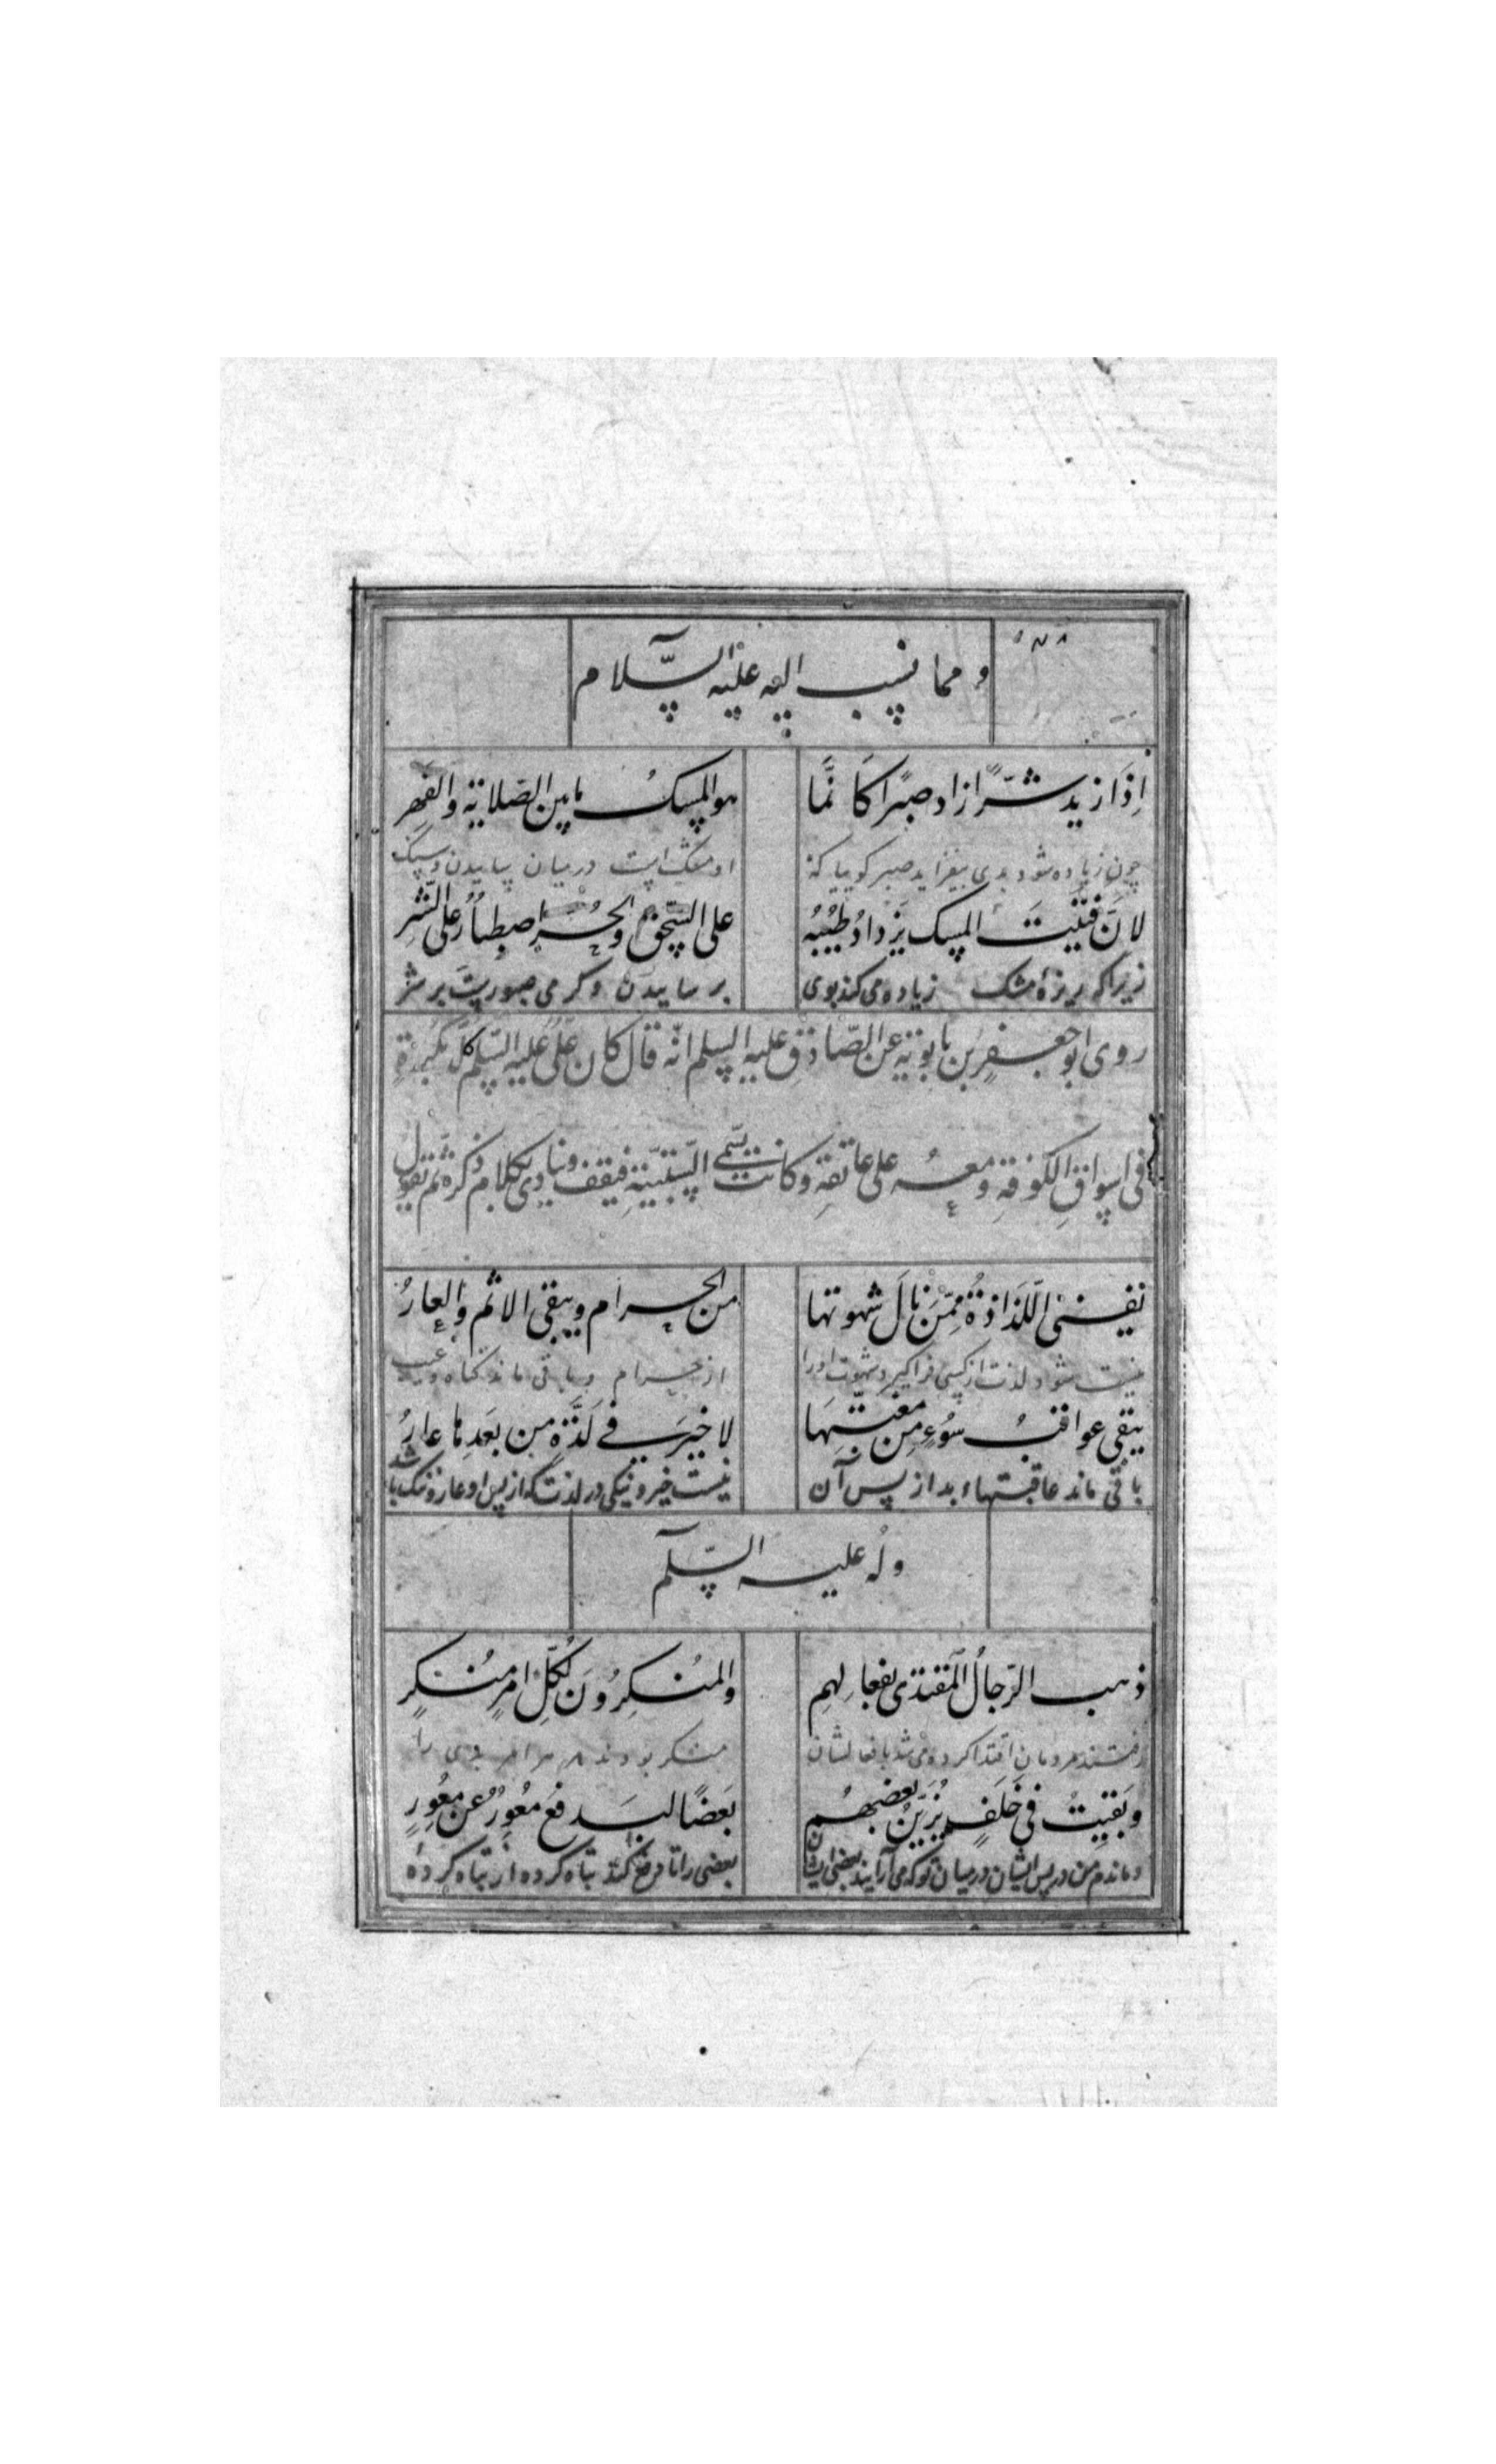 ومما نسب اليه عليه السّلام
اِذَا زيد شرًّا زاد صبرًا كَانَّما هو المسكُ مابين الصّلاية والفَهِر
چون زياده شود بدی بيفزايد صبر كوييا كه او مشك است درميان ساييدن وسنك
لانَّ فَتيتَ المسك يَزدادُ طيبُهُ على السّحق والحُرُّ اصطبارٌ على الشَّرِ
زيراكه ريزۀ مشك زياده می كند بوی بر ساييدن وكرمی صبوريت بر شر
روى ابو جعفرِ بن بابويه عن الصّادق عليه السلم انّه قال كان علىٌّ عليه السّلم كلّ بُكرةٍ
فى اسواق الكوفة ومعه على عاتقه وكانت تسمى السّبتيّة فيقف وينادى بكلام ذكره ثم يقول
تفنى اللّذاذةُ ممّن نالَ شهوتها من الحرام ويبقى الاثم والعارُ
نيست شود لذت ازكسی فراكيرد شهوت اورا از حرام وباقی ماند كناه وعيب
يبقى عواقبُ سُوءٍ من مغبّتِهَا لا خيرَ فى لَذَّةٍ من بَعدِها عارُ
باقی ماند عاقبتهاء بد از پس آن نيست خير ونيكی در لذت كه از پس او عار وننك باشد
وله عليه السّلم
ذهب الرّجالُ المقتدى بفعالهم والمُنكِرُونَ لكلِّ امرٍ مُنكرٍ
رفتند مردمان اقتدا كرده می شد بافعالشان منكر بودند هر امر بدی را
وبَقيتُ فى خَلَفٍ يُزَيّنُ بعضهُم بَعضًا ليدفع مُعوِرٌ عن مُعوِرٍ
وماندم من در پس ايشان درميان كه می آرايند بعضی ايشان بعضی را تا دفع كند تباه كرده از تباه كرده